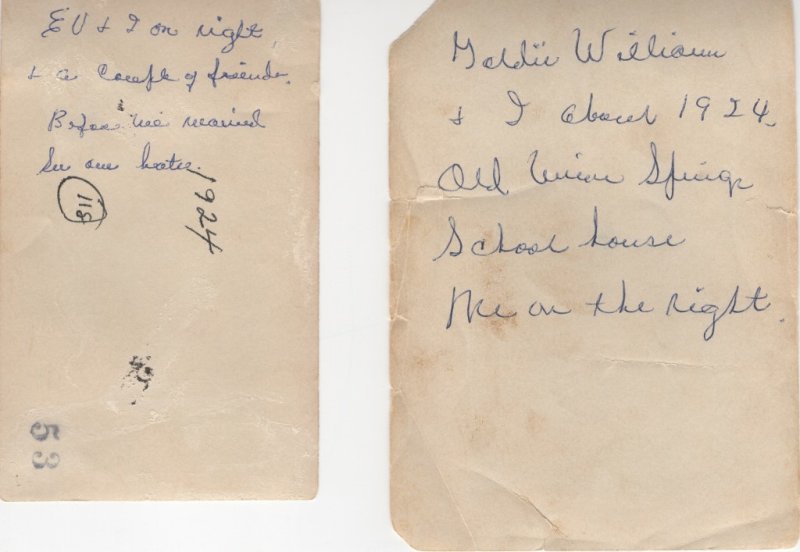 EV & I on right
& a Couple of friends.
Before we married
In our hats.
118
1924
53
Goldie William
& I about 1924.
Old Union Springs
School house
Me on the right.